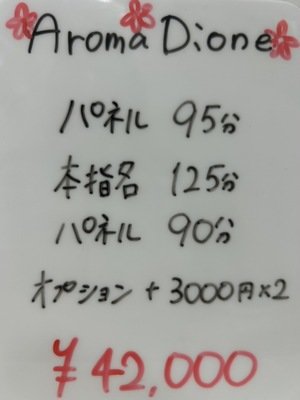 Aroma Dione
パネル 95分
本指名 125分
パネル 90分
オプション + 3000円×2
¥42,000